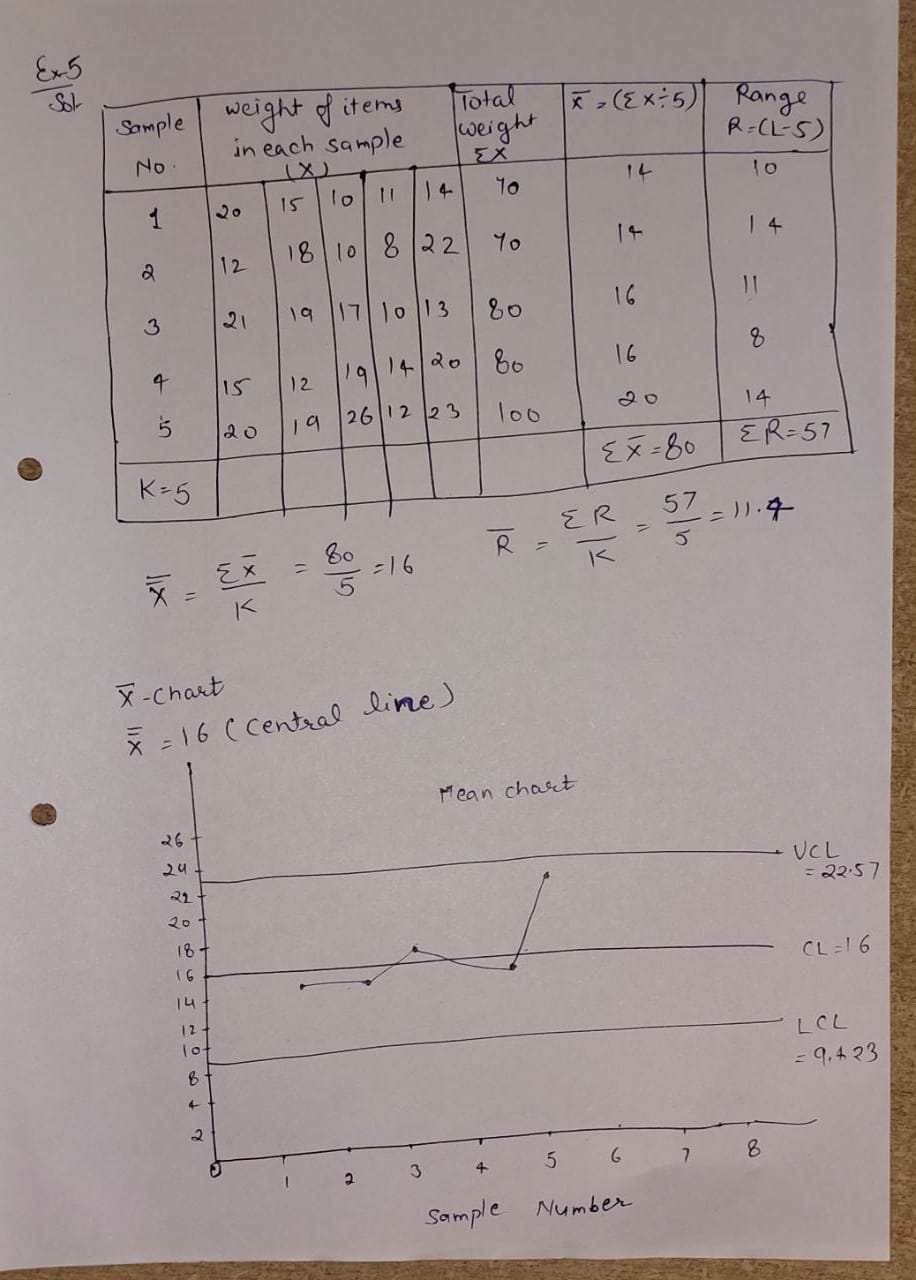 Ex-5
Sol-
Sample No. | weight of items in each sample (X) | Total weight ΣX | x̄ = (Σx÷5) | Range R=(L-S)
1 | 20 | 15 | 10 | 11 | 14 | 70 | 14 | 10
2 | 12 | 18 | 10 | 8 | 22 | 70 | 14 | 14
3 | 21 | 19 | 17 | 10 | 13 | 80 | 16 | 11
4 | 15 | 12 | 19 | 14 | 20 | 80 | 16 | 8
5 | 20 | 19 | 26 | 12 | 23 | 100 | 20 | 14
K=5 | Σx̄=80 | ΣR=57
x̿ = Σx̄/K = 80/5 = 16
R̄ = ΣR/K = 57/5 = 11.4
x̄-chart
x̿ = 16 (Central line)
Mean chart
26
24
22
20
18
16
14
12
10
8
4
2
0
UCL
= 22.57
CL=16
LCL
= 9.423
1 2 3 4 5 6 7 8
Sample Number